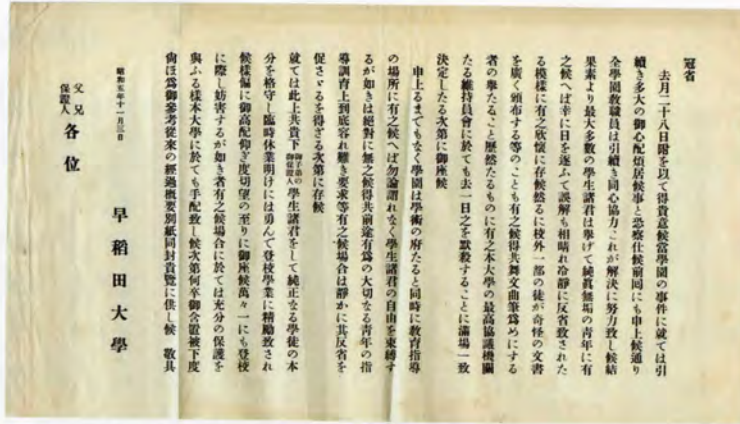 冠省
去月二十八日附を以て得貴意候當學園の事件に就ては引
續き多大の御心配煩居候事と恐察仕候前囘にも申上候通り
全學園敎職員は引續き同心協力これが解決に努力致し候結
果素より最大多數の學生諸君は擧げて純眞無垢の靑年に有
之候へば幸に日を逐ふて誤解も相晴れ冷靜に反省致された
る模樣に有之欣懷に存候然るに校外一部の徒が奇怪の文書
を廣く頒布する等のことも有之候得共舞文曲筆爲めにする
者の擧たること歷然たるものに有之本大學の最高協議機關
たる維持員會に於ても去一日之を默殺することに滿場一致
決定したる次第に御座候
申上るまでもなく學園は學術の府たると同時に敎育指導
の場所に有之候へば勿論謂れなく學生諸君の自由を束縛す
るが如きは絕對に無之候得共前途有爲の大切なる靑年の指
導訓育上到底容れ難き要求等有之候場合は靜かに其反省を
促さゞるを得ざる次第に存候
就ては此上共貴下御子弟の御保證人學生諸君をして純正なる學徒の本
分を恪守し臨時休業明けには勇んで登校學業に精勵致され
候樣偏に御高配仰ぎ度切望の至りに御座候萬々一にも登校
に際し妨害するが如き者有之候場合に於ては充分の保護を
與ふる樣本大學に於ても手配致し候次第何卒御含置被下度
尙ほ爲御參考從來の經過槪要別紙同封貴覽に供し候 敬具
昭和五年十一月三日
早稻田大學
父兄
保證人 各位